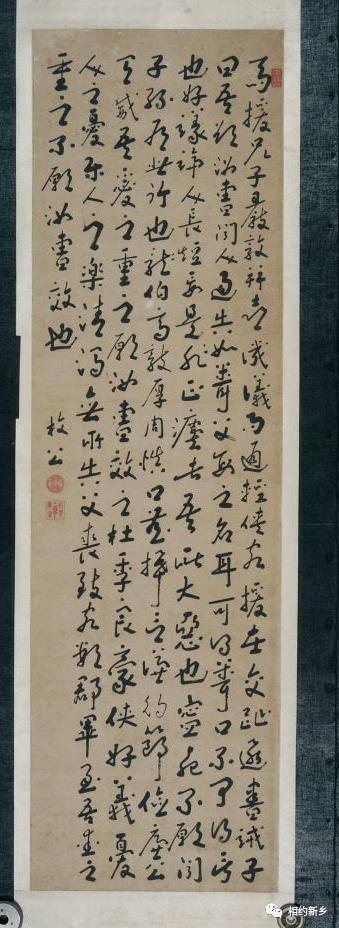 馬援兄子嚴敦并喜譏議而通輕俠客援在交趾還書誡子
曰吾欲汝曹聞人過失如聞父母之名耳可得聞口不可得言
也好議論人長短妄是非正灋此吾所大惡也寧死不願聞
子孫有此行也龍伯高敦厚周慎口無擇言謙約節儉廉公
有威吾愛之重之願汝曹效之杜季良豪俠好義憂
人之憂樂人之樂清濁無所失父喪致客數郡畢至吾愛之
重之不願汝曹效也
枚公
相约新乡